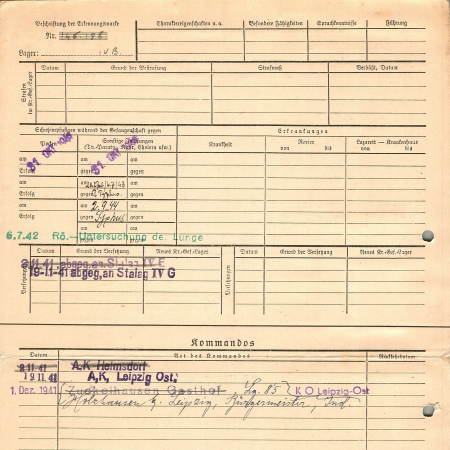 Beschriftung der Erkennungsmarke
Nr.
Lager: IVB
Charaktereigenschaften u. a.
Besondere Fähigkeiten
Sprachkenntnisse
Führung
Strafen im Kr.-Gef.-Lager
Datum
Grund der Bestrafung
Strafmaß
Verbüßt, Datum
Schutzimpfungen während der Gefangenschaft gegen
Erkrankungen
Pocken
Sonstige Impfungen
(Ty.-Paraty., Ruhr, Cholera usw.)
Krankheit
Revier
von bis
Lazarett — Krankenhaus
von bis
31 OKT 1941
31 OKT 1941
am am gegen
Erfolg gegen
am am
Erfolg gegen
am am 2.9.44
Erfolg gegen Typhus
am am
Erfolg gegen
6.7.42 Rö.-Untersuchung der Lunge
Versetzungen
Datum
Grund der Versetzung
Neues Kr.-Gef.-Lager
Versetzungen
Datum
Grund der Versetzung
Neues Kr.-Gef.-Lager
abgeg. an Stalag IV E
19-11-41 abgeg. an Stalag IV G
Kommandos
Datum
Art des Kommandos
Rückkehrdatum
A.K Heimsdorf
19 11 41 A.K. Leipzig Ost.
1. Dez. 1941 Zuckelhausen Gasthof Lg. 85 K O Leipzig-Ost
Holzhausen b. Leipzig, Bürgermeister, Ind